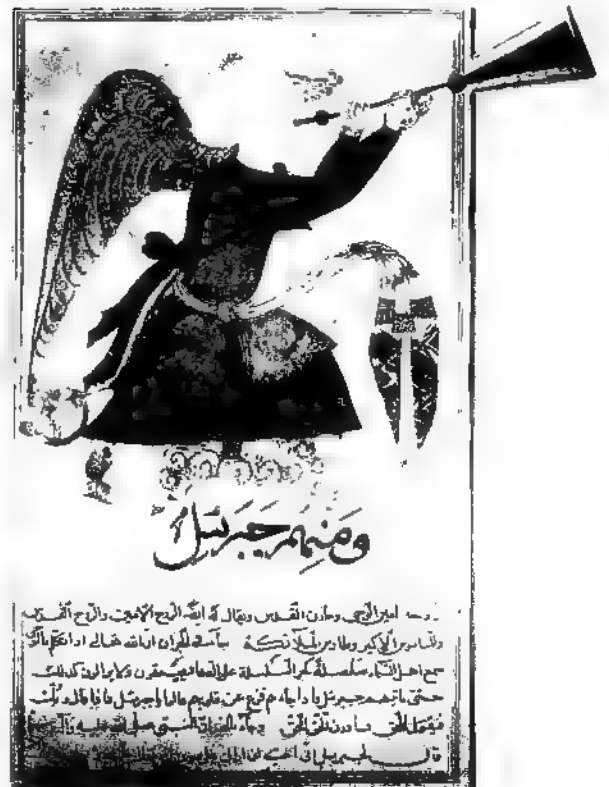 ومنهم جبرئيل
امين الوحى وخازن القدس ويقال له ايضا الروح الامين والروح القدس
الاكبر وطاوس الملائكة جا فى الخبران ان الله تعالى اذا تكلم بالوحى
سمع اهل السماء صلصلة كجر السلسلة على الصفا فيصعقون ولا يزالون كذلك
حتى ياتيهم جبرئيل فاذا جاءهم فزع عن قلوبهم قالوا يا جبرئيل ماذا قال ربك
فيقول الحق فينادون الحق الحق وجا فى الخبر ان النبى صلى الله عليه
قال لجبرئيل انى احب ان اراك